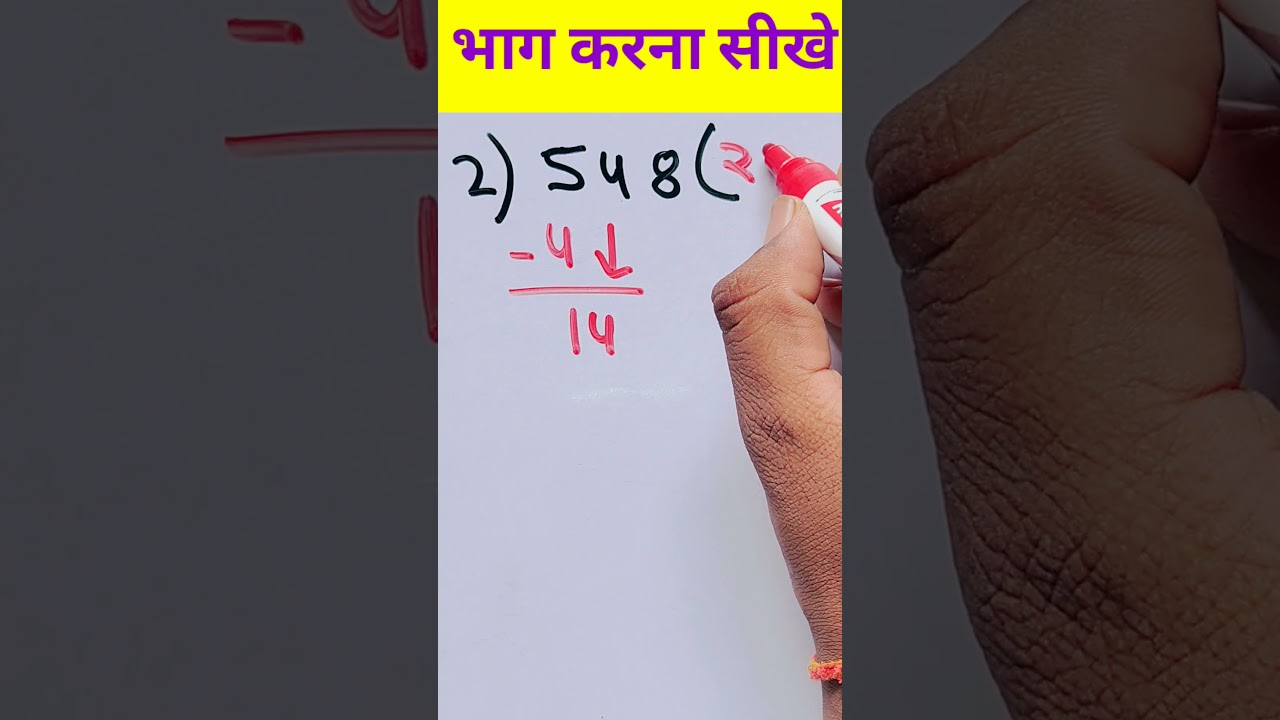 भाग करना सीखे
2) 548 (2
- 4 ↓
14